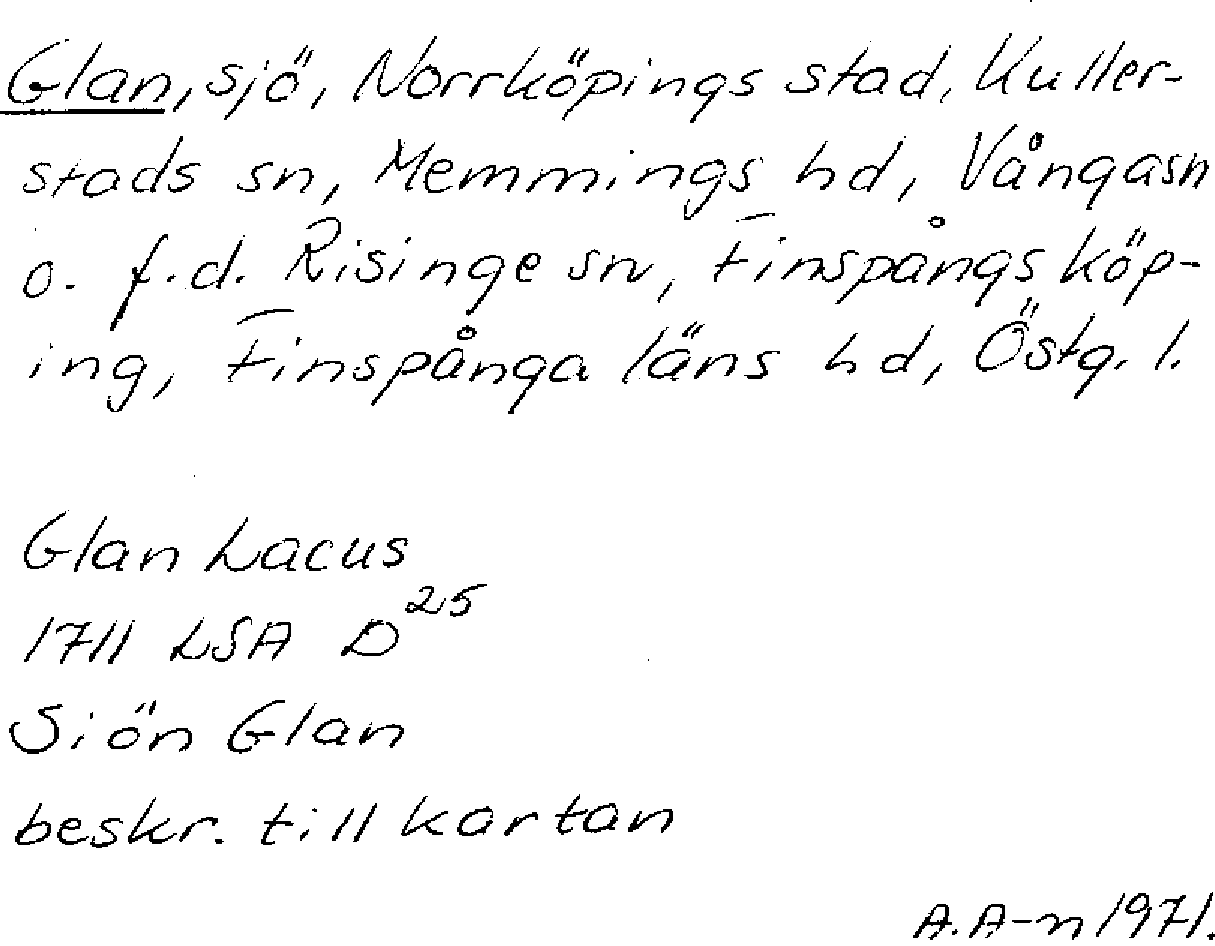 Glan, sjö, Norrköpings stad, Kuller-
stads sn, Memmings hd, Vånga sn
o. f.d. Risinge sn, Finspångs köp-
ing, Finspånga läns hd, Östg. l.
Glan Lacus
1711 LSA D25
Siön Glan
beskr. till kartan
A.A-n 1971.